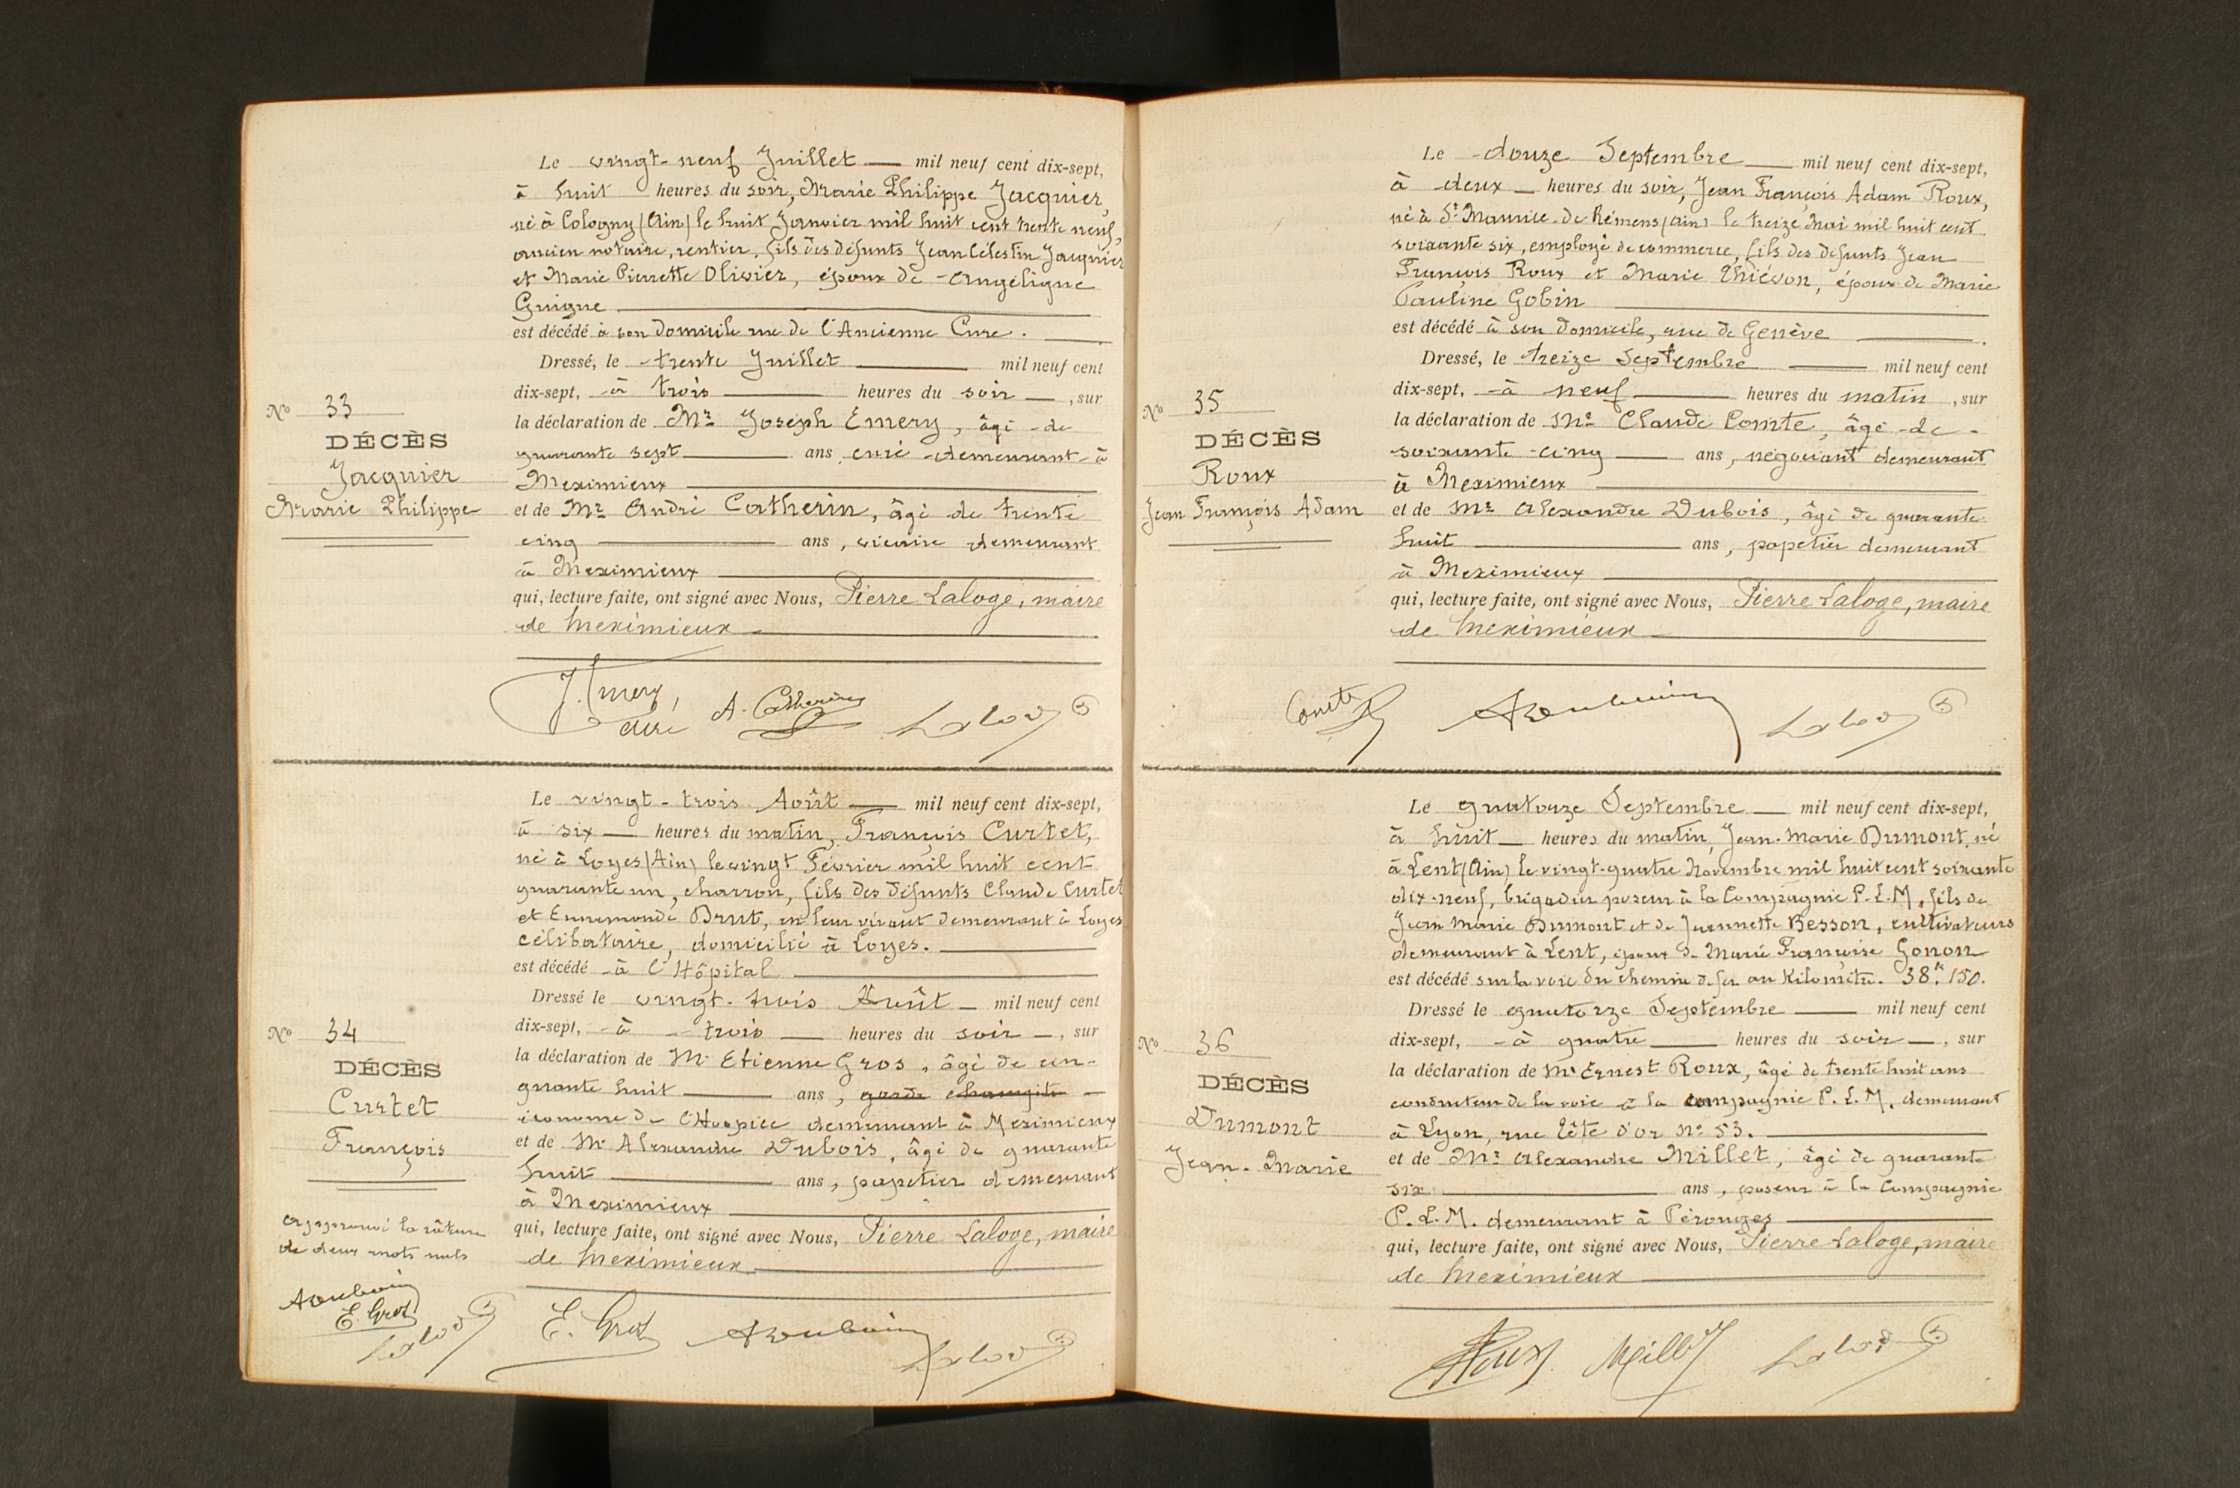 Le vingt-neuf Juillet — mil neuf cent dix-sept,
à huit heures du soir, Marie Philippe Jacquier,
né à Cologny (Ain) le huit Janvier mil huit cent trente neuf,
ancien notaire, rentier, fils des défunts Jean Célestin Jacquier
et Marie Pierrette Olivier, époux de Angéligne
Guigue
est décédé à son domicile rue de l'Ancienne Cure.
Dressé, le trente Juillet mil neuf cent
dix-sept, à trois heures du soir, sur
No 33
la déclaration de Mr Joseph Emery, âgé de
DÉCÈS
quarante sept ans, curé demeurant à
Jacquier
Meximieux
Marie Philippe
et de Mr André Catherin, âgé de trente
cinq ans, vicaire demeurant
à Meximieux
qui, lecture faite, ont signé avec Nous, Pierre Laloge, maire
de Meximieux
J. Emery, curé A. Catherin
Le vingt-trois Août — mil neuf cent dix-sept,
à six — heures du matin, François Curtet,
né à Loyes (Ain) le vingt Février mil huit cent
quarante un, charron, fils des défunts Claude Curtet
et Ennemonde Brut, en leur vivant demeurant à Loyes
célibataire, domicilié à Loyes.
est décédé à l'Hôpital
Dressé le vingt-trois Août — mil neuf cent
No 34
dix-sept, à trois heures du soir, sur
la déclaration de Mr Etienne Gros, âgé de cin-
DÉCÈS
quante huit ans, garde champêtre
Curtet
économe de l'Hospice demeurant à Meximieux
François
et de Mr Alexandre Dubois, âgé de quarante
huit ans, papetier demeurant
à Meximieux
approuvé la râture
de deux mots nuls
qui, lecture faite, ont signé avec Nous, Pierre Laloge, maire
de Meximieux
E. Gros
E. Gros
Le douze Septembre — mil neuf cent dix-sept,
à deux — heures du soir, Jean François Adam Roux,
né à St Maurice-de Rémens (Ain) le treize Mai mil huit cent
soixante six, employé de commerce, fils des défunts Jean
François Roux et Marie Thiévon, époux de Marie
Pauline Gobin
est décédé à son domicile, rue de Genève
Dressé, le treize Septembre mil neuf cent
dix-sept, à neuf heures du matin, sur
No 35
la déclaration de Mr Claude Comte, âgé de
DÉCÈS
soixante-cinq ans, négociant demeurant
Roux
à Meximieux
Jean François Adam
et de Mr Alexandre Dubois, âgé de quarante
huit ans, papetier demeurant
à Meximieux
qui, lecture faite, ont signé avec Nous, Pierre Laloge, maire
de Meximieux
Comte
Le quatorze Septembre — mil neuf cent dix-sept,
à huit — heures du matin, Jean-Marie Dumont, né
à Lent (Ain) le vingt-quatre Novembre mil huit cent soixante
dix-neuf, brigadier poseur à la Compagnie P.L.M, fils de
Jean Marie Dumont et de Jeannette Besson, cultivateurs
demeurant à Lent, époux de Marie Françoise Gonon
est décédé sur la voie du chemin de fer au Kilomètre. 38k.150.
Dressé le quatorze Septembre mil neuf cent
No 36
dix-sept, à quatre heures du soir, sur
la déclaration de Mr Ernest Roux, âgé de trente huit ans
DÉCÈS
conducteur de la voie à la compagnie P.L.M. demeurant
Dumont
à Lyon, rue Tête d'Or No 53.
Jean-Marie
et de Mr Alexandre Millet, âgé de quarante
six ans, poseur à la Compagnie
P.L.M. demeurant à Pérouges
qui, lecture faite, ont signé avec Nous, Pierre Laloge, maire
de Meximieux
Roux Millet